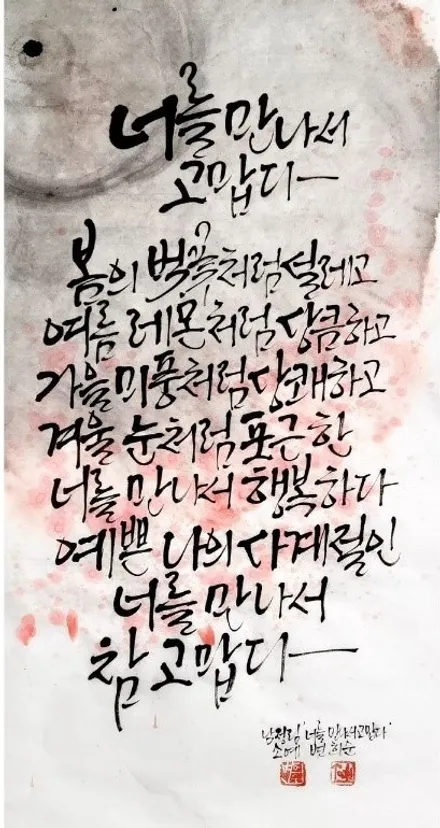 너를 만나서
고맙다
봄의 벚꽃처럼 설레고
여름 레몬처럼 상큼하고
가을 미풍처럼 상쾌하고
겨울 눈처럼 포근한
너를 만나서 행복하다
예쁜 나의 사계절인
너를 만나서
참 고맙다
남정림 '너를 만나서 고맙다'
소예 변희순